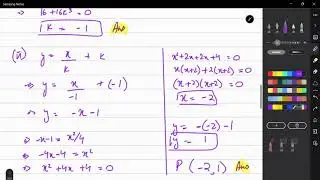 Samsung Notes
⇒ 16 + 16k³ = 0
⇒ k = -1 Ans
(ii) y = x/k + k
⇒ y = x/-1 + (-1)
⇒ y = -x - 1
⇒ -x-1 = x²/4
⇒ -4x-4 = x²
⇒ x² + 4x + 4 = 0
x² + 2x + 2x + 4 = 0
x(x+2) + 2(x+2) = 0
(x+2)(x+2) = 0
x = -2
y = -(-2) - 1
y = 1
P (-2,1) Ans